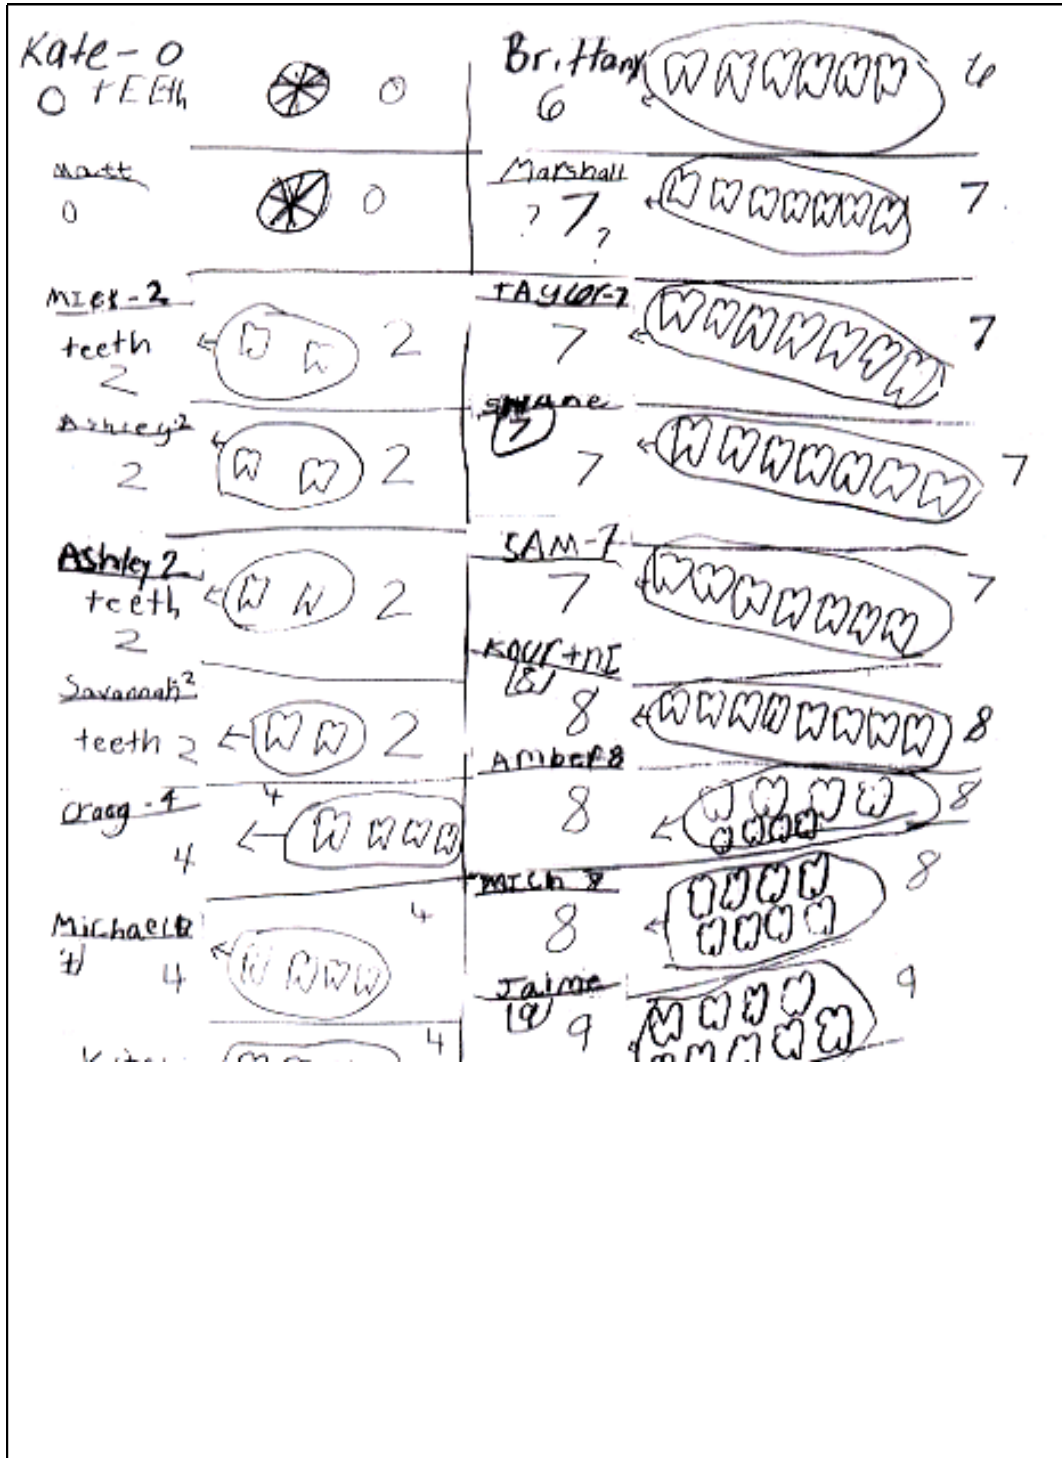 Kate - 0
0 tEEth 0
Matt
0 0
MIEK - 2
teeth 2
2
Ashley 2
2 2
Ashley 2
teeth 2
2
Savannah 2
teeth 2 2
Craeg - 4 4
4
Michael 4
4 4
4
Brittany 6
6
Marshall 7
? 7 ?
TAylor-7 7
7
7
7 7
SAM-7 7
7
Kour+nI
8 8 8
Amber 8
8 8
MICh 8 8
8
Jaime 9
9 9